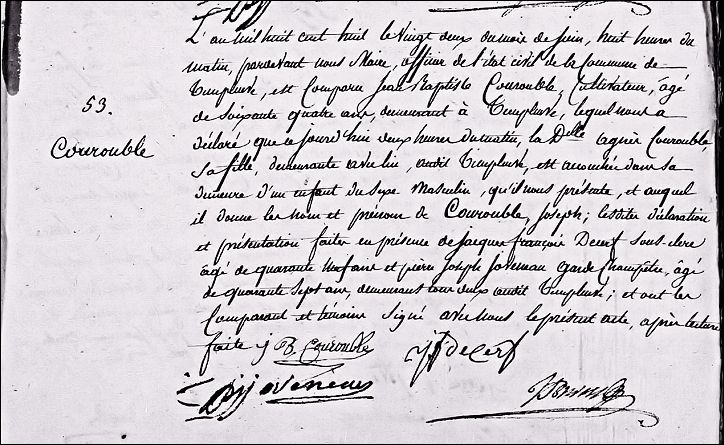 L'an mil huit cent huit le vingt deux du mois de juin, huit heures du
matin, pardevant nous Maire, officier de l'état civil de la Commune de
Templeuve, est Comparu Jean Baptiste Courouble, Cultivateur, âgé
de soixante quatre ans, demeurant à Templeuve, lequel nous a
53.
déclaré que ce jourd'hui deux heures du matin, la Dlle agnès Courouble
Courouble
sa fille, demeurante avec lui, audit Templeuve, est accouchée dans sa
demeure d'un enfant du sexe Masculin, qu'il nous présente, et auquel
il donne les nom et prénom de Courouble, Joseph; lesdites déclaration
et présentation faites en présence de jacques françois Decerf sous-clerc
âgé de quarante neuf ans et pierre joseph joveneau Garde Champêtre, âgé
de quarante sept ans, demeurans tous deux audit Templeuve; et ont les
Comparant et témoins signé avec nous le présent acte, après lecture
faite j B Courouble jf decerf
ppj joveneau